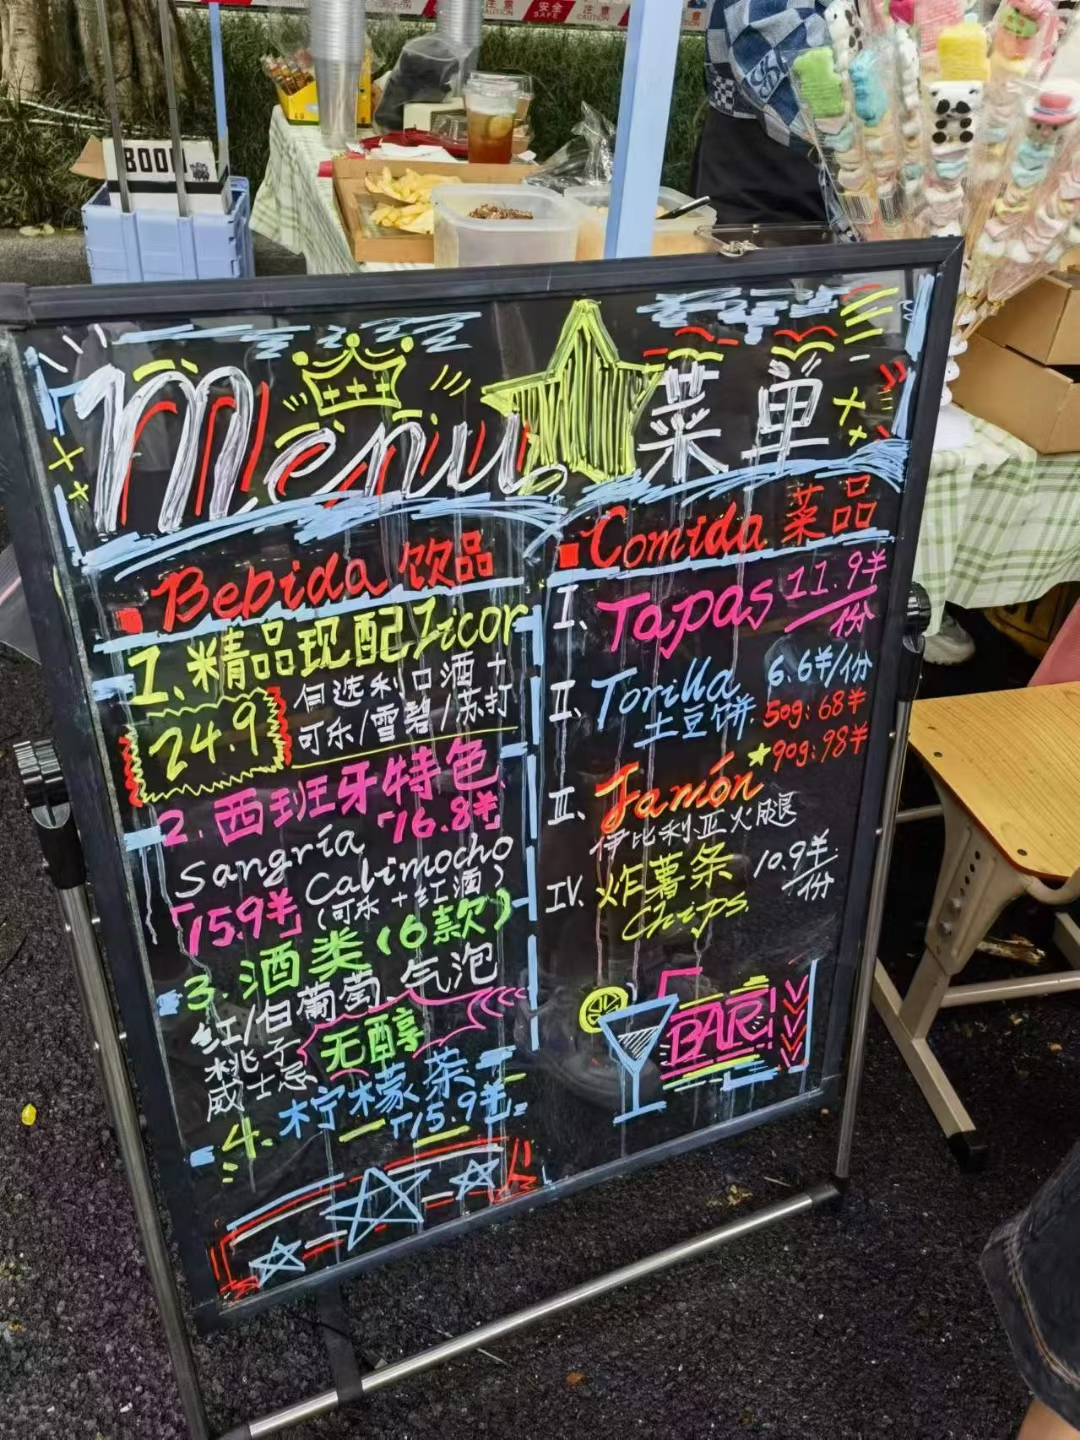 安全
SAFE
注意
CAUTION
BOOM
Menu
菜单
Bebida 饮品
1、精品现配licor
24.9
自选利口酒+
可乐/雪碧/苏打
2.西班牙特色
「16.8¥」
Sangría
Calimocho
「15.9¥」
(可乐+红酒)
3 酒类(6款)
红/白葡萄、气泡
桃子
无醇
威士忌
4. 柠檬茶
「15.9¥」
Comida 菜品
I. Tapas 11.9¥/份
II. Torilla 6.6¥/份
土豆饼
50g:68¥
90g:98¥
II. Jamón
伊比利亚火腿
IV. 炸薯条 10.9¥/份
Chips.
BAR!